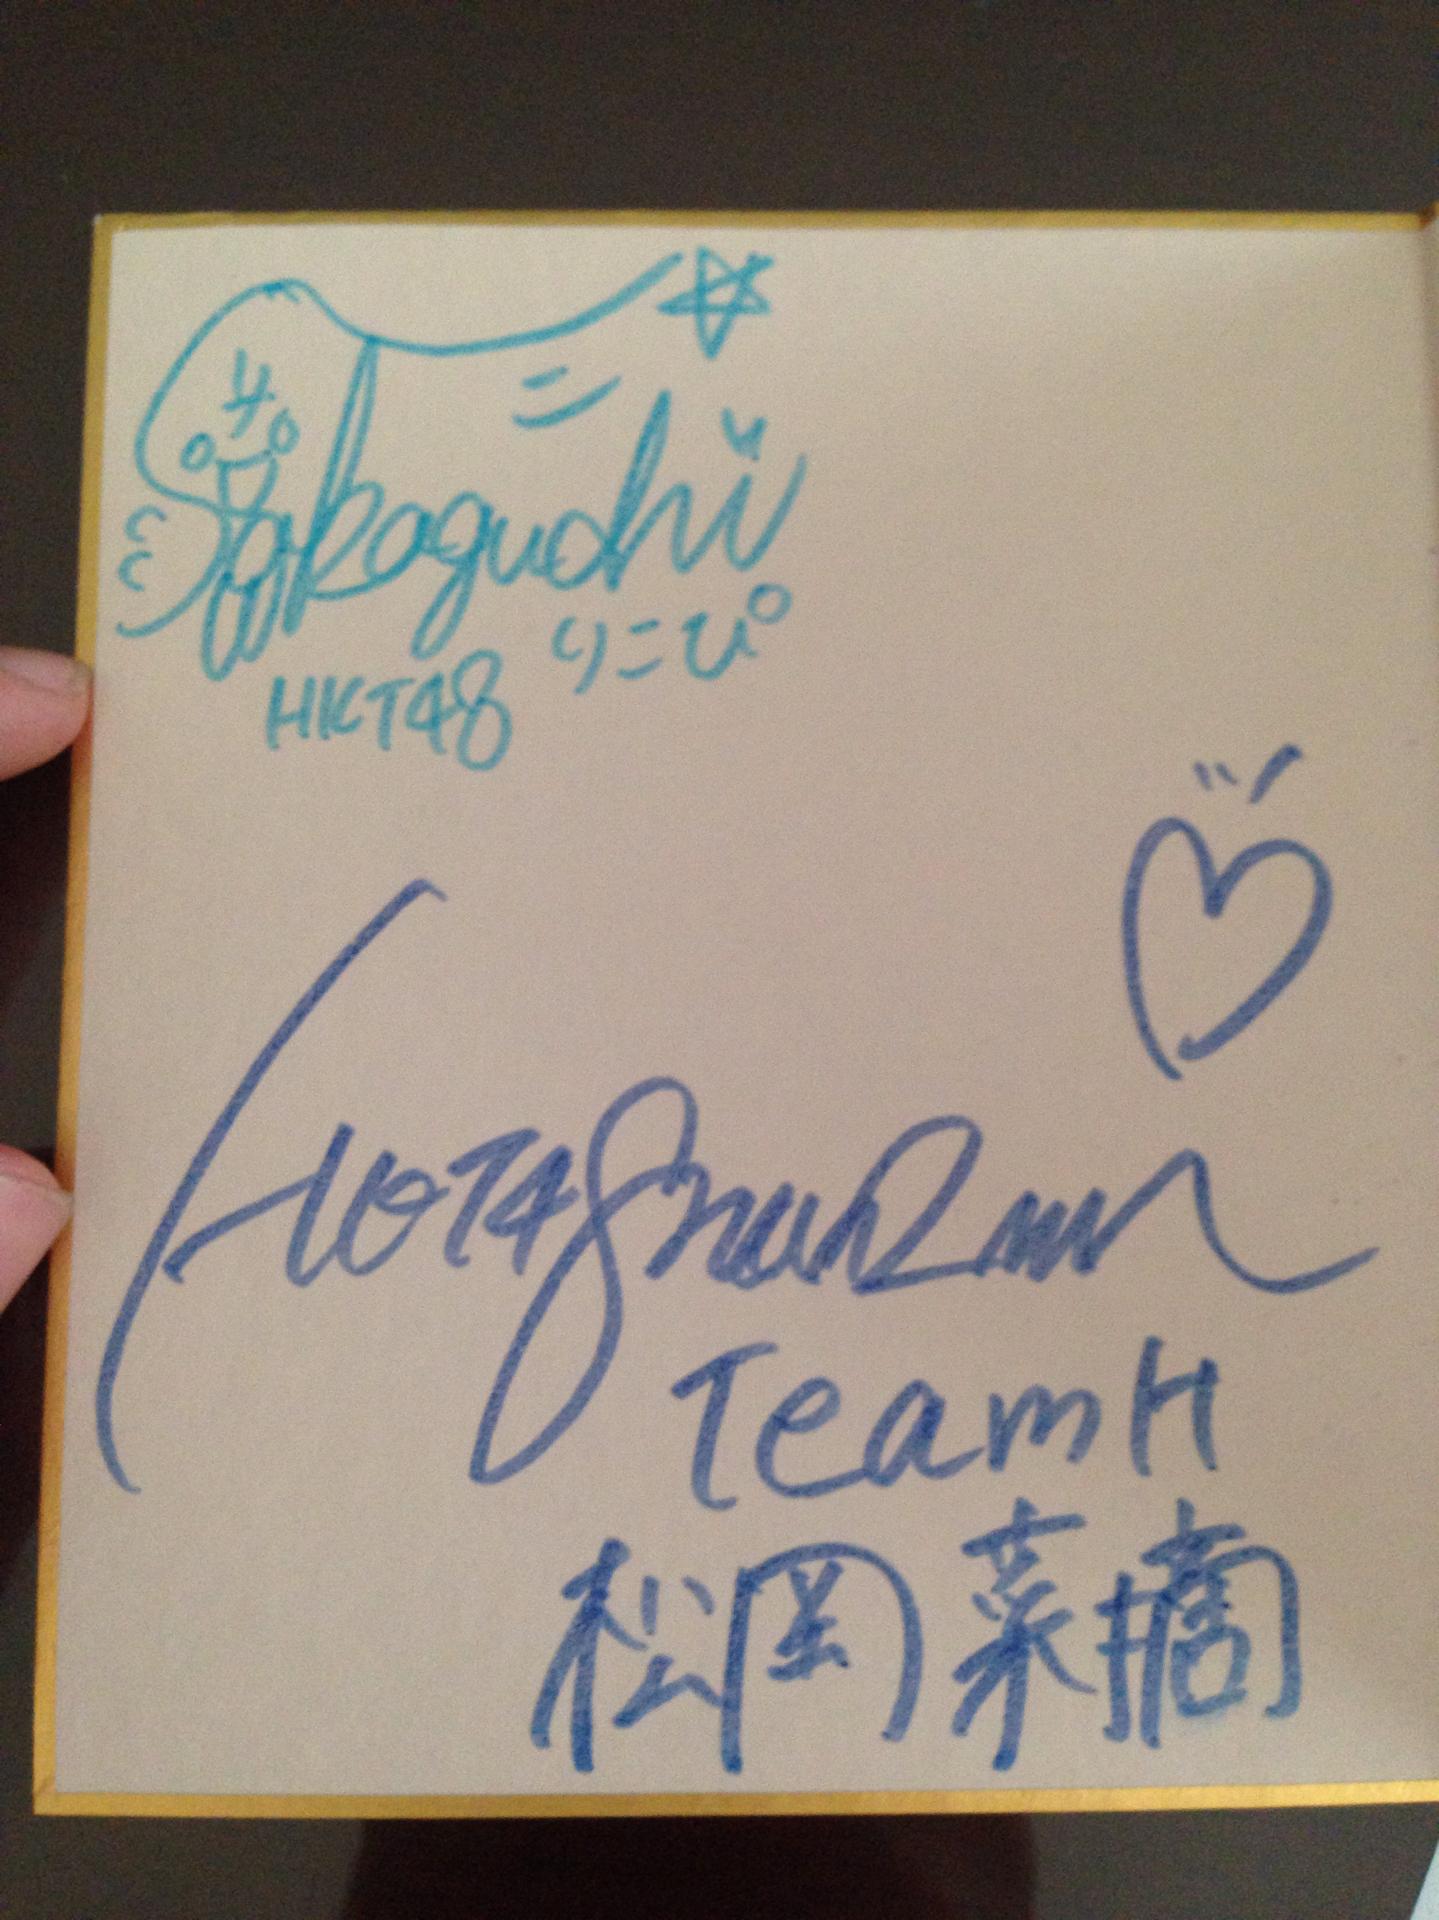 サ
Sakaguchi
りこぴ
HKT48
HKT48
TeamH
松岡菜摘